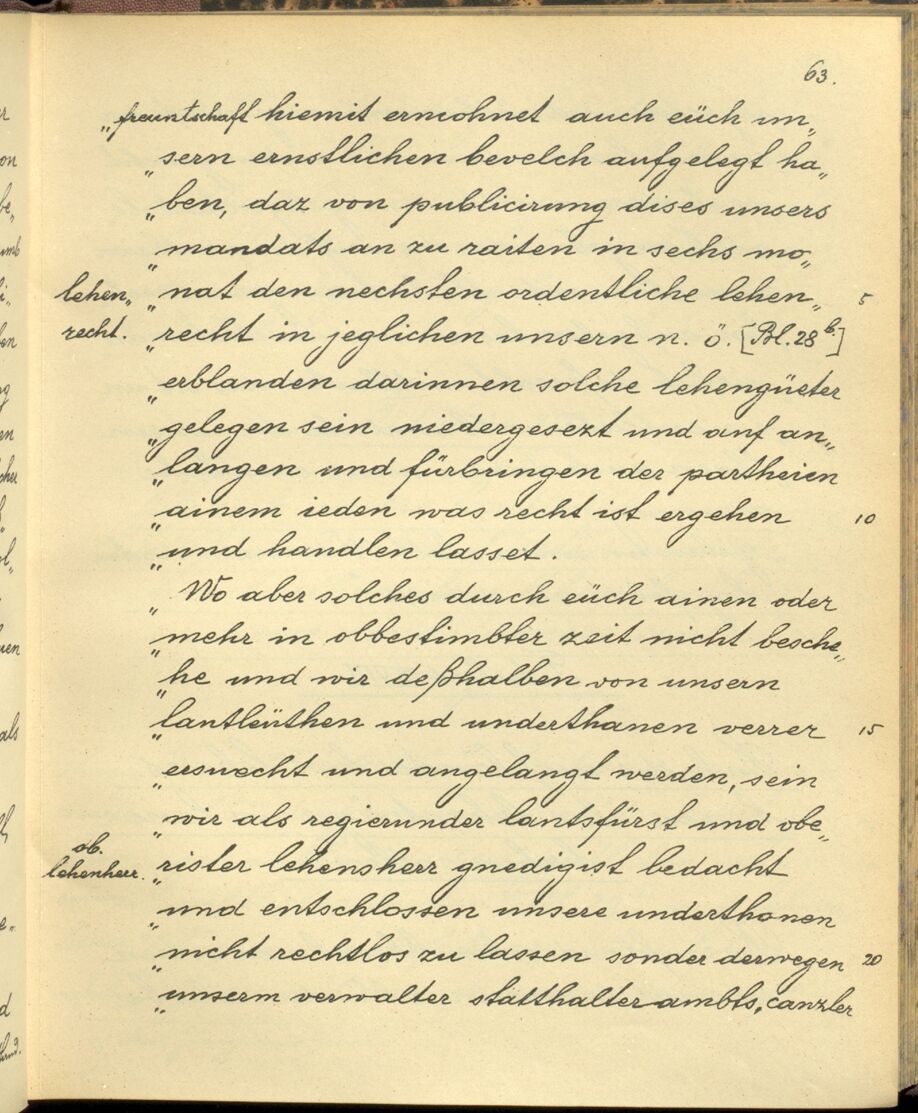 63.
„freuntschaft hiemit ermohnet auch eüch un„
„sern ernstlichen bevelch aufgelegt ha„
„ben, daz von publicirung dises unsers
„mandats an zu raiten in sechs mo„
lehen„ „nat den nechsten ordentliche lehen„ 5
recht. „recht in jeglichen unsern n. ö. [Bl. 28b.]
„erblanden darinnen solche lehengüeter
„gelegen sein niedergesezt und auf an„
„langen und fürbringen der partheien
„ainem ieden was recht ist ergehen 10
„und handlen lasset.
„Wo aber solches durch eüch ainen oder
„mehr in obbestimbter zeit nicht besche„
„he und wir deßhalben von unsern
„lantleüthen und underthanen verrer 15
„ersuecht und angelangt werden, sein
„wir als regierunder lantsfürst und obe„
ob. lehenherr. „rister lehensherr gnedigist bedacht
„und entschlossen unsere underthonen
„nicht rechtlos zu lassen sonder derwegen 20
„unserm verwalter statthalter ambts, canzler